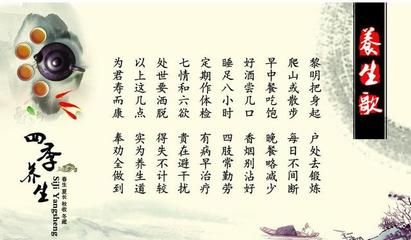 養生歌
黎明把身起 户处去锻炼
爬山或散步 每日不间断
早中餐吃饱 晚餐略减少
好酒尝几口 香烟别沾好
睡足八小时 四肢常勤劳
定期作体检 有病早治疗
七情和六欲 贵在避干扰
处世要洒脱 得失不计较
以上这几点 实为养生道
为君寿而康 奉劝全做到
四季养生
春生夏长 秋收冬藏
Siji Yangsheng